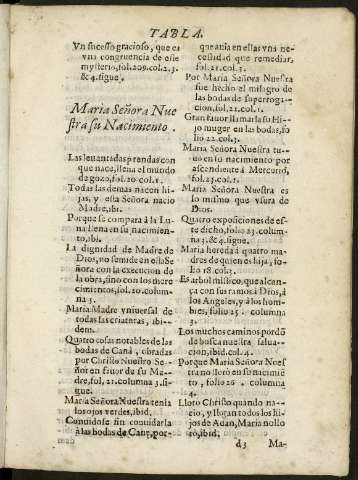 TABLA.
Vn sucesso gracioso, que es
vna congruencia de este
mysterio, fol. 209. col. 2. 3.
& 4. sigue.
Maria Señora Nue
stra su Nacimiento.
Las leuantadas prendas con
que nace, llena el mundo
de gozo, fol. 20. col. 1.
Todas las demas nacen hi-
jas, y esta Señora nacio
Madre, ibi.
Porque se compara à la Lu-
na llena en su nacimien-
to, ibi.
La dignidad de Madre de
Dios, no se mide en esta Se-
ñora con la execucion de
la obra, sino con los mere
cimientos, fol. 20. colum-
na 3.
Maria Madre vniuersal de
todas las criaturas, ibi-
dem.
Quatro cosas notables de las
bodas de Canà, obradas
por Christo Nuestro Se-
ñor en fauor de su Ma-
dre, fol. 21. columna 3. si-
gue.
Maria Señora Nuestra tenia
los ojos verdes, ibid.
Conuidose sin conuidarla
à las bodas de Canà, por-
que auia en ellas vna ne-
cessidad que remediar,
fol. 21. col. 3.
Por Maria Señora Nuestra
fue hecho el milagro de
las bodas de superroga-
cion, fol. 22. col. 1.
Gran fauor llamarla su Hi-
jo muger en las bodas, fo
lio 22. col. 3.
Maria Señora Nuestra tu-
uo en su nacimiento por
ascendiente à Mercurio,
fol. 23. col. 1.
Maria Señora Nuestra es
lo mismo que vsura de
Dios.
Quatro exposiciones de es-
te dicho, folio 23. colum-
na 3. & 4. sigue.
Maria heredà à quatro ma-
dres de quien es hija, fo-
lio 18. col. 3.
Es arbol mistico, que alcan-
ça con sus ramos à Dios, à
los Angeles, y à los hom-
bres, folio 25. columna
3.
Los muchos caminos perdō
de busca nuestra salua-
cion, ibid. col. 4.
Porque Maria Señora Nues
tra no llorò en su nacimiē
to, folio 26. columna
4.
Llora Christo quando na-
cio, y llegan todos los hi-
jos de Adan, Maria no llo
rò, ibid.
d3 Ma-